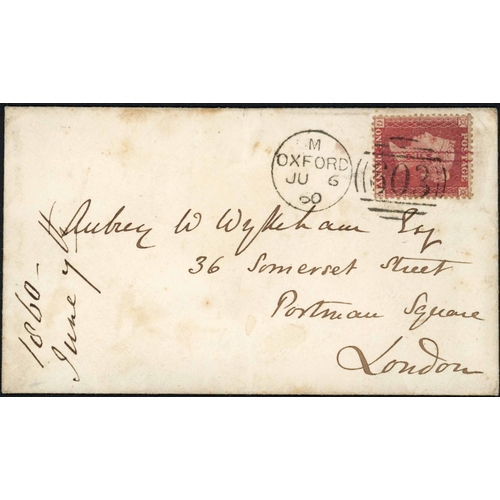 M
OXFORD
JU 6
60
603
POSTAGE
ONE PENNY
Aubrey W Wykeham Esq
36 Somerset Street
Portman Square
London
1860-
June 7th